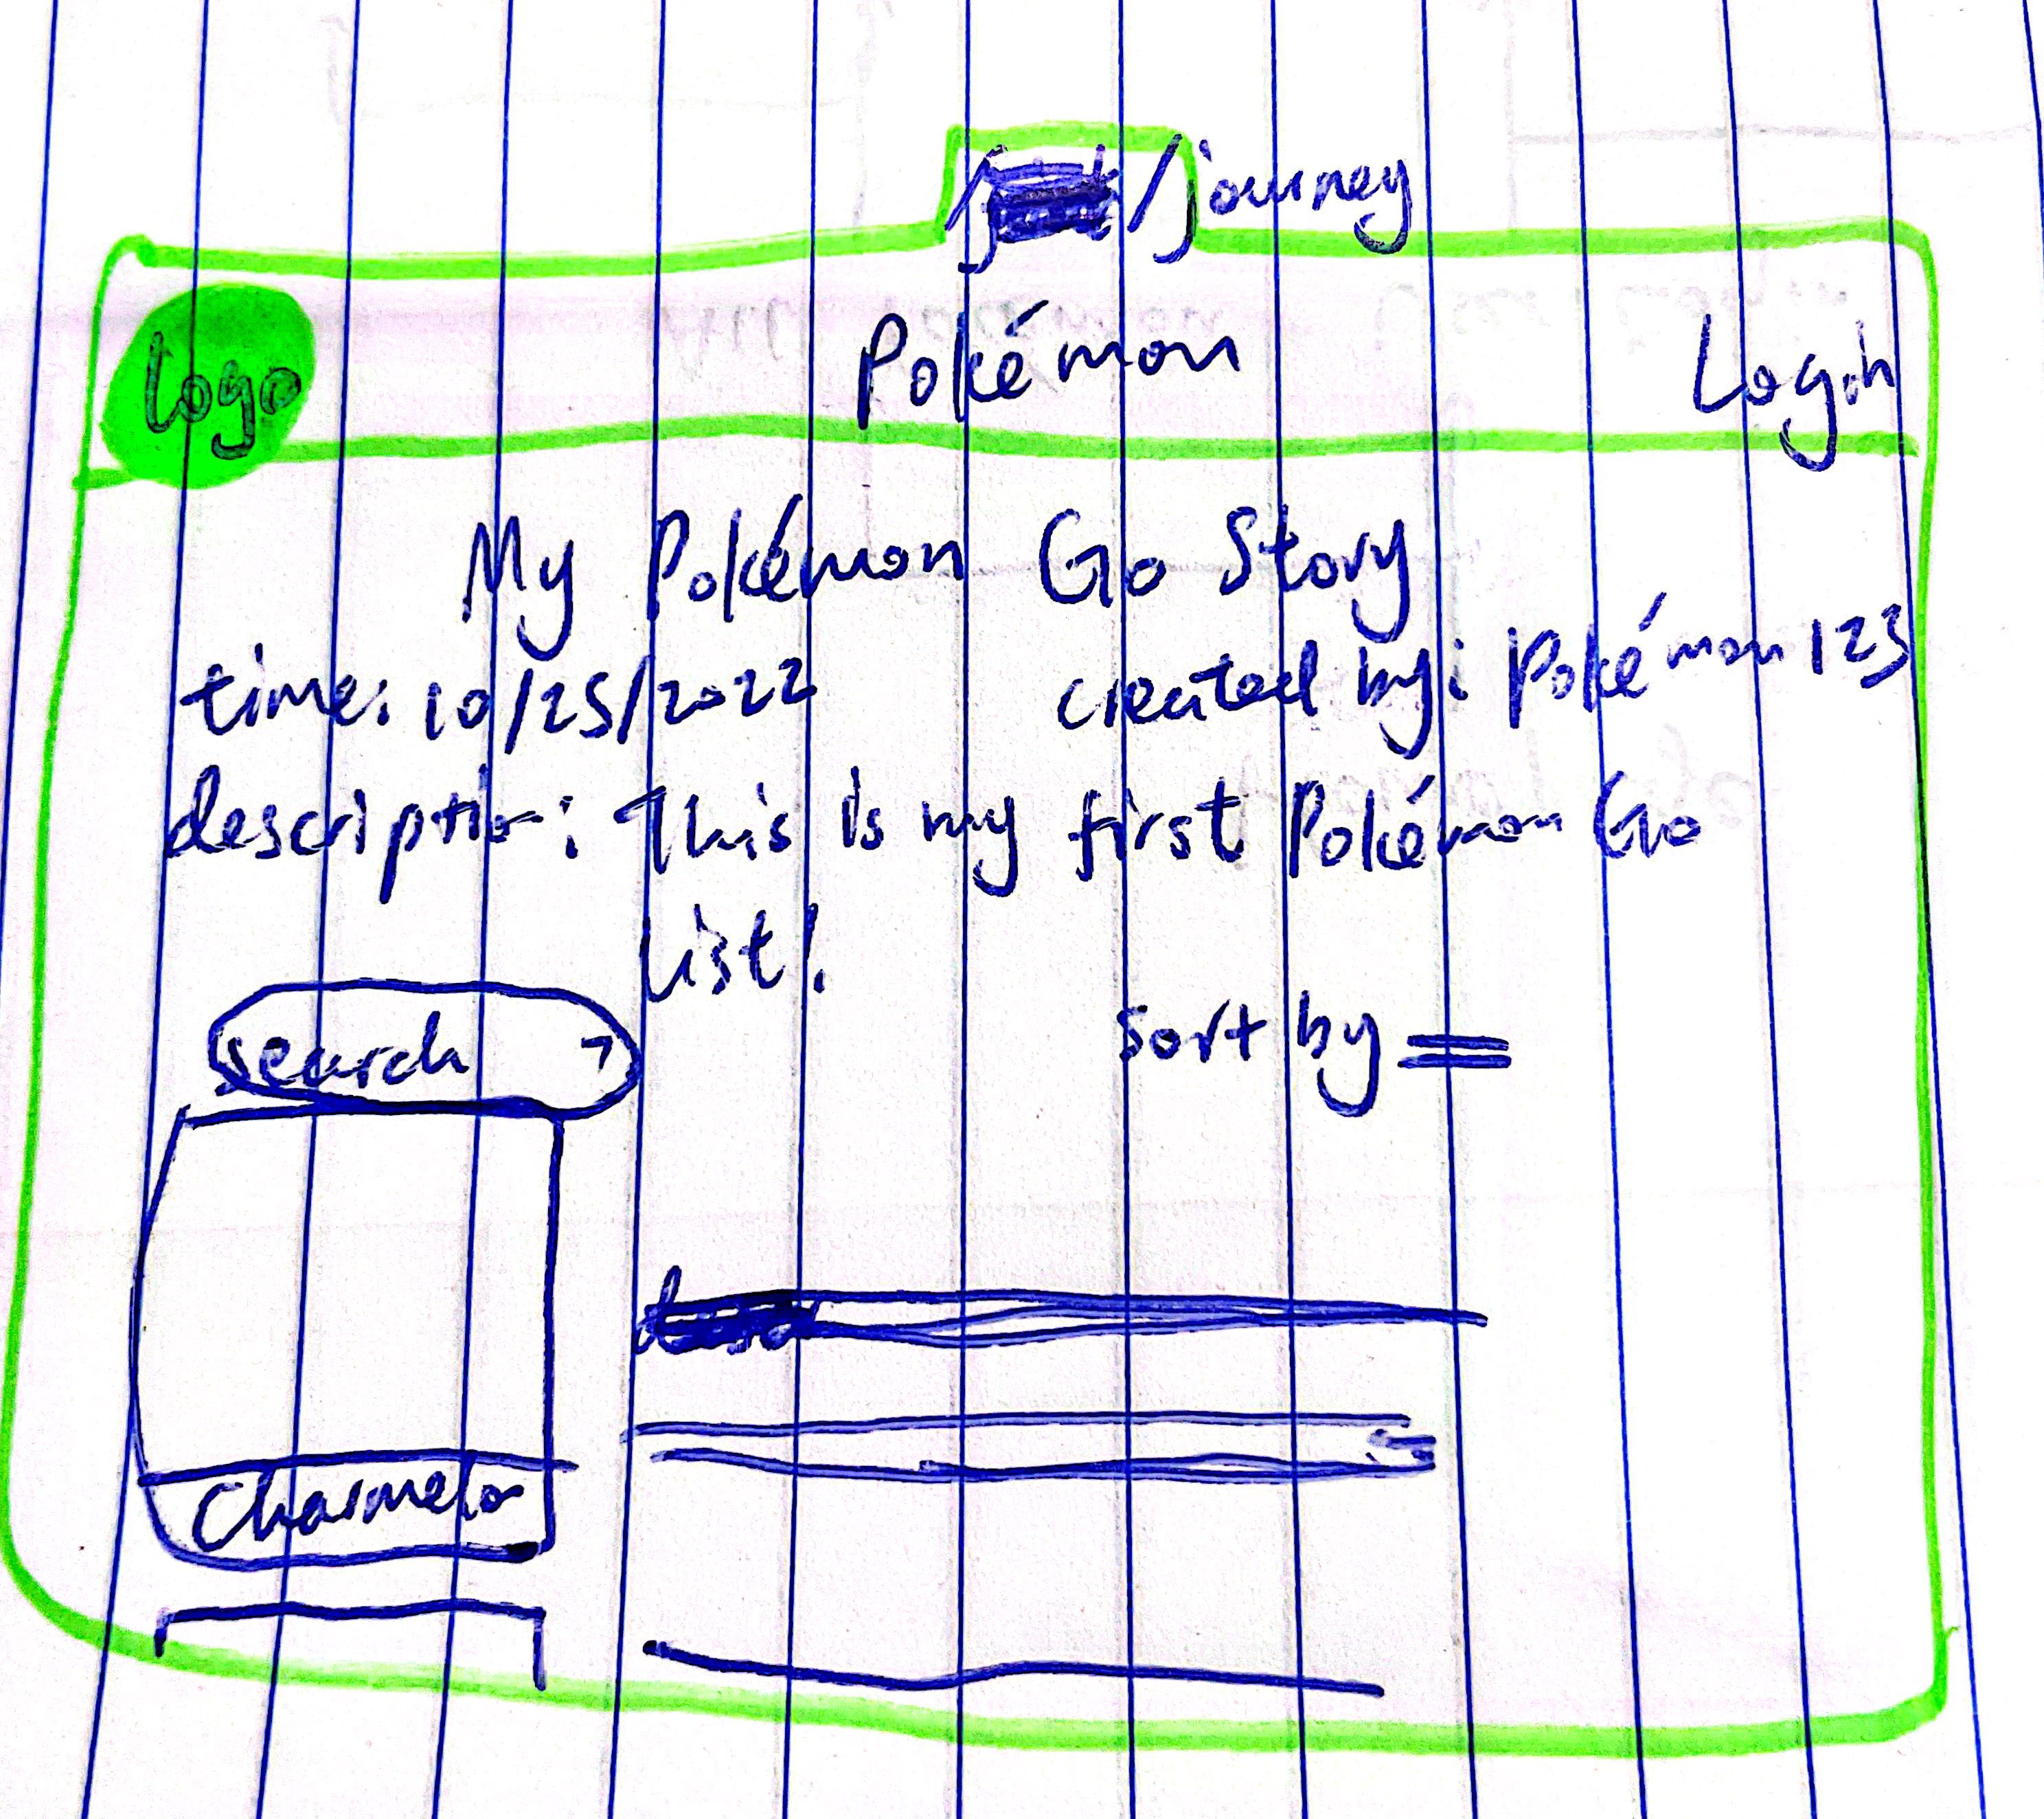 /journey
Logo Pokémon Login
My Pokémon Go Story
time: 10/25/2022 created by: Pokémon123
description: This is my first Pokémon Go
list!
search
sort by
Charmelo